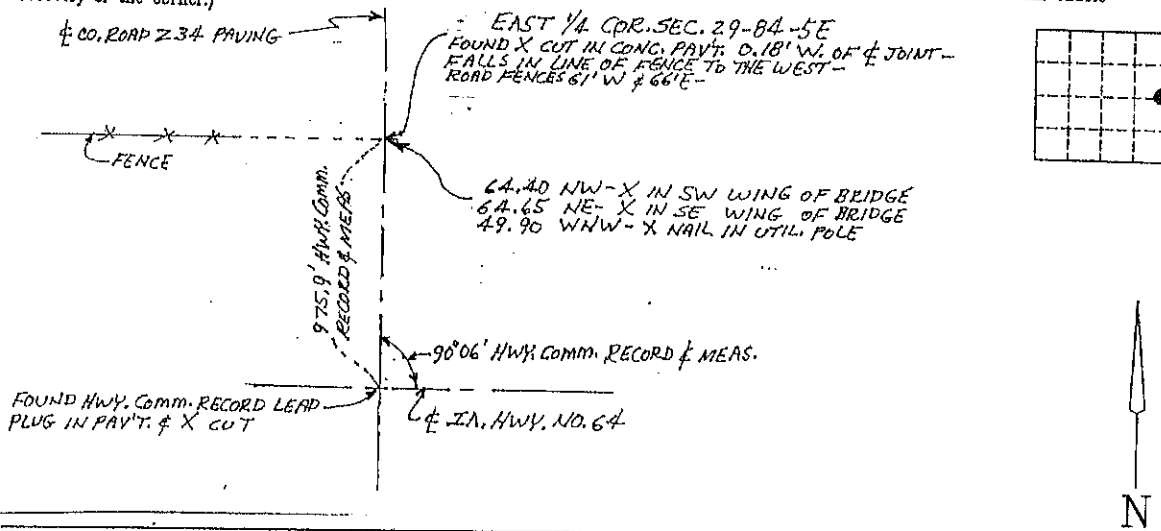 of the corner.)
℄ CO. ROAD Z34 PAVING
EAST 1/4 COR. SEC. 29-84-5E
FOUND X CUT IN CONC. PAV'T. 0.18' W. OF ℄ JOINT-
FALLS IN LINE OF FENCE TO THE WEST-
ROAD FENCES 61' W & 66' E-
FENCE
64.40 NW-X IN SW WING OF BRIDGE
64.65 NE- X IN SE WING OF BRIDGE
49.90 WNW-X NAIL IN UTIL. POLE
975.9' HWY. COMM.
RECORD & MEAS
90°06' HWY. COMM. RECORD & MEAS.
FOUND HWY. COMM. RECORD LEAD
PLUG IN PAV'T. & X CUT
℄ IA. HWY. NO. 64
N